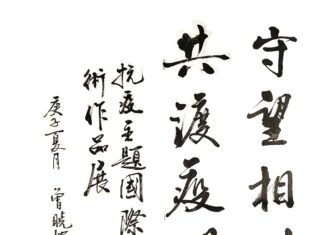 守望相
共渡疫
抗疫主題國際
術作品展
庚子夏月 曾曉